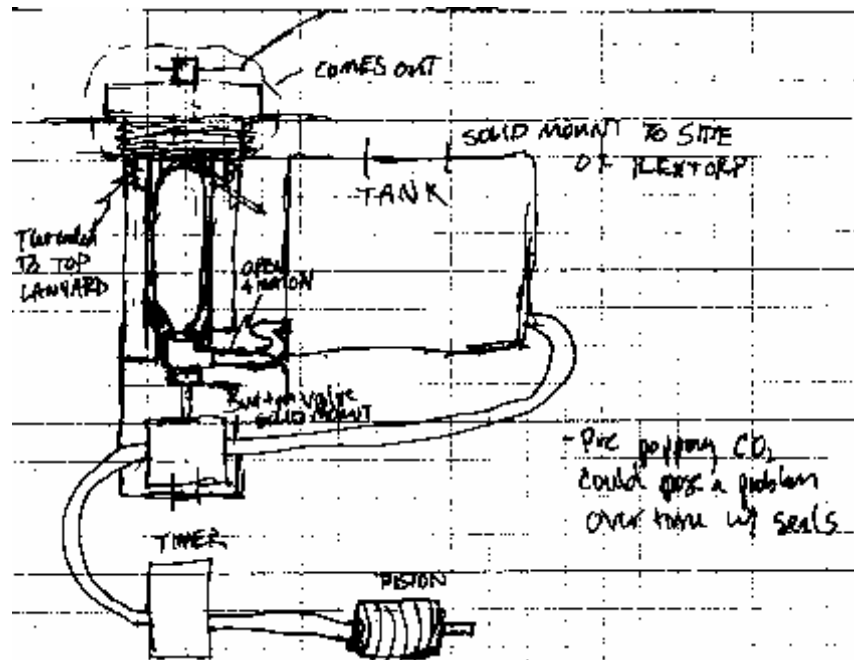 COMES OUT
SOLID MOUNT TO SIDE
OF
TANK
Threaded
TO TOP
LANYARD
OPEN
Button Valve
SOLID MOUNT
- Pre popping CO2
could pose a problem
over time w/ seals
TIMER
PISTON